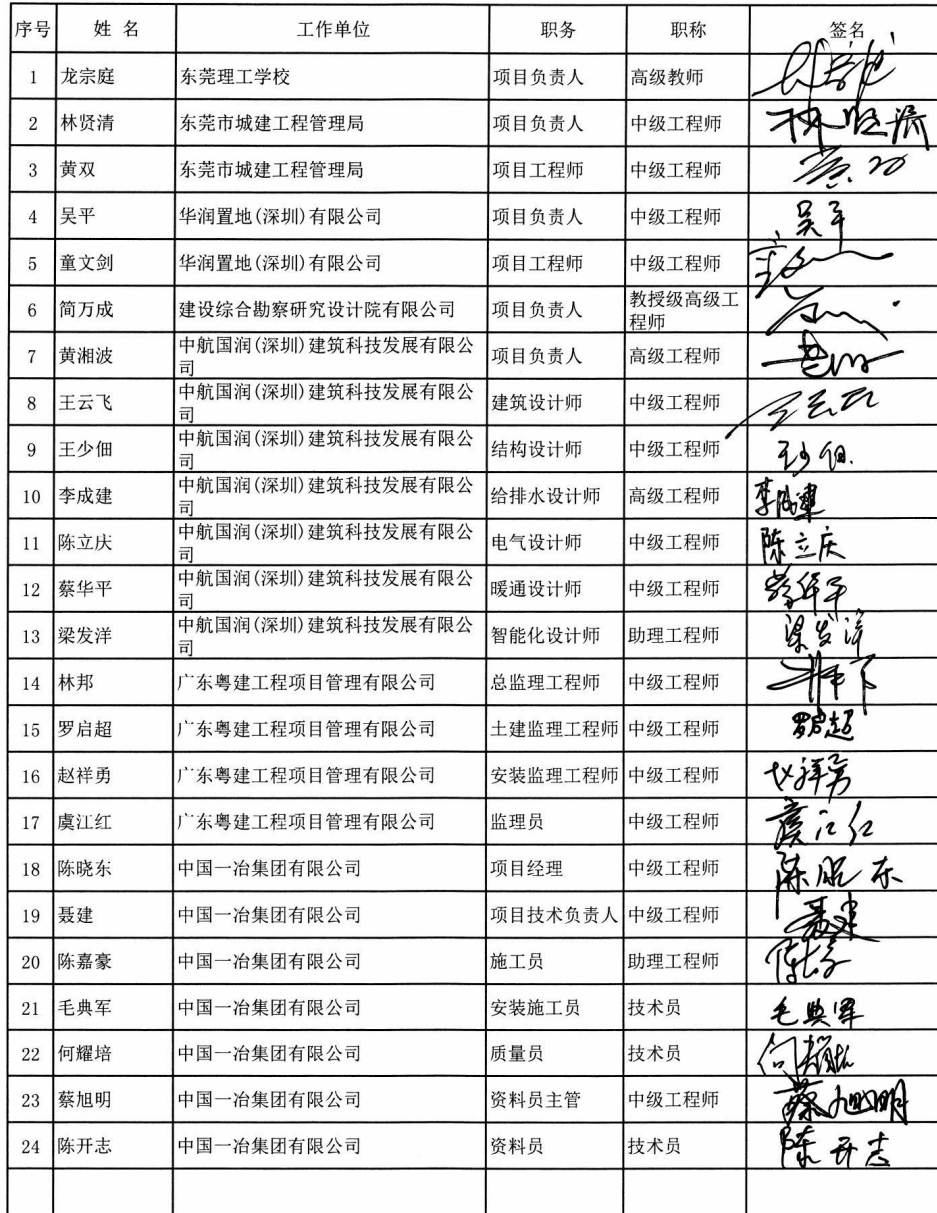 序号 姓 名 工作单位 职务 职称 签名
1 龙宗庭 东莞理工学校 项目负责人 高级教师
2 林贤清 东莞市城建工程管理局 项目负责人 中级工程师 林贤清
3 黄双 东莞市城建工程管理局 项目工程师 中级工程师 黄双
4 吴平 华润置地(深圳)有限公司 项目负责人 中级工程师 吴平
5 童文剑 华润置地(深圳)有限公司 项目工程师 中级工程师
6 简万成 建设综合勘察研究设计院有限公司 项目负责人 教授级高级工
程师
7 黄湘波 中航国润(深圳)建筑科技发展有限公
司 项目负责人 高级工程师
8 王云飞 中航国润(深圳)建筑科技发展有限公
司 建筑设计师 中级工程师 王云飞
9 王少佃 中航国润(深圳)建筑科技发展有限公
司 结构设计师 中级工程师 王少佃
10 李成建 中航国润(深圳)建筑科技发展有限公
司 给排水设计师 高级工程师 李成建
11 陈立庆 中航国润(深圳)建筑科技发展有限公
司 电气设计师 中级工程师 陈立庆
12 蔡华平 中航国润(深圳)建筑科技发展有限公
司 暖通设计师 中级工程师 蔡华平
13 梁发洋 中航国润(深圳)建筑科技发展有限公
司 智能化设计师 助理工程师 梁发洋
14 林邦 广东粤建工程项目管理有限公司 总监理工程师 中级工程师
15 罗启超 广东粤建工程项目管理有限公司 土建监理工程师 中级工程师 罗启超
16 赵祥勇 广东粤建工程项目管理有限公司 安装监理工程师 中级工程师 赵祥勇
17 虞江红 广东粤建工程项目管理有限公司 监理员 中级工程师 虞江红
18 陈晓东 中国一冶集团有限公司 项目经理 中级工程师 陈晓东
19 聂建 中国一冶集团有限公司 项目技术负责人 中级工程师 聂建
20 陈嘉豪 中国一冶集团有限公司 施工员 助理工程师
21 毛典军 中国一冶集团有限公司 安装施工员 技术员 毛典军
22 何耀培 中国一冶集团有限公司 质量员 技术员 何耀培
23 蔡旭明 中国一冶集团有限公司 资料员主管 中级工程师 蔡旭明
24 陈开志 中国一冶集团有限公司 资料员 技术员 陈开志